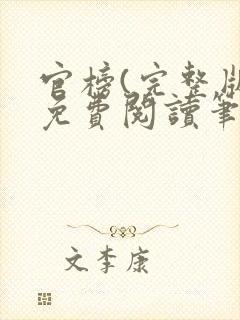 官榜(完整版
免費閱讀筆
文李康